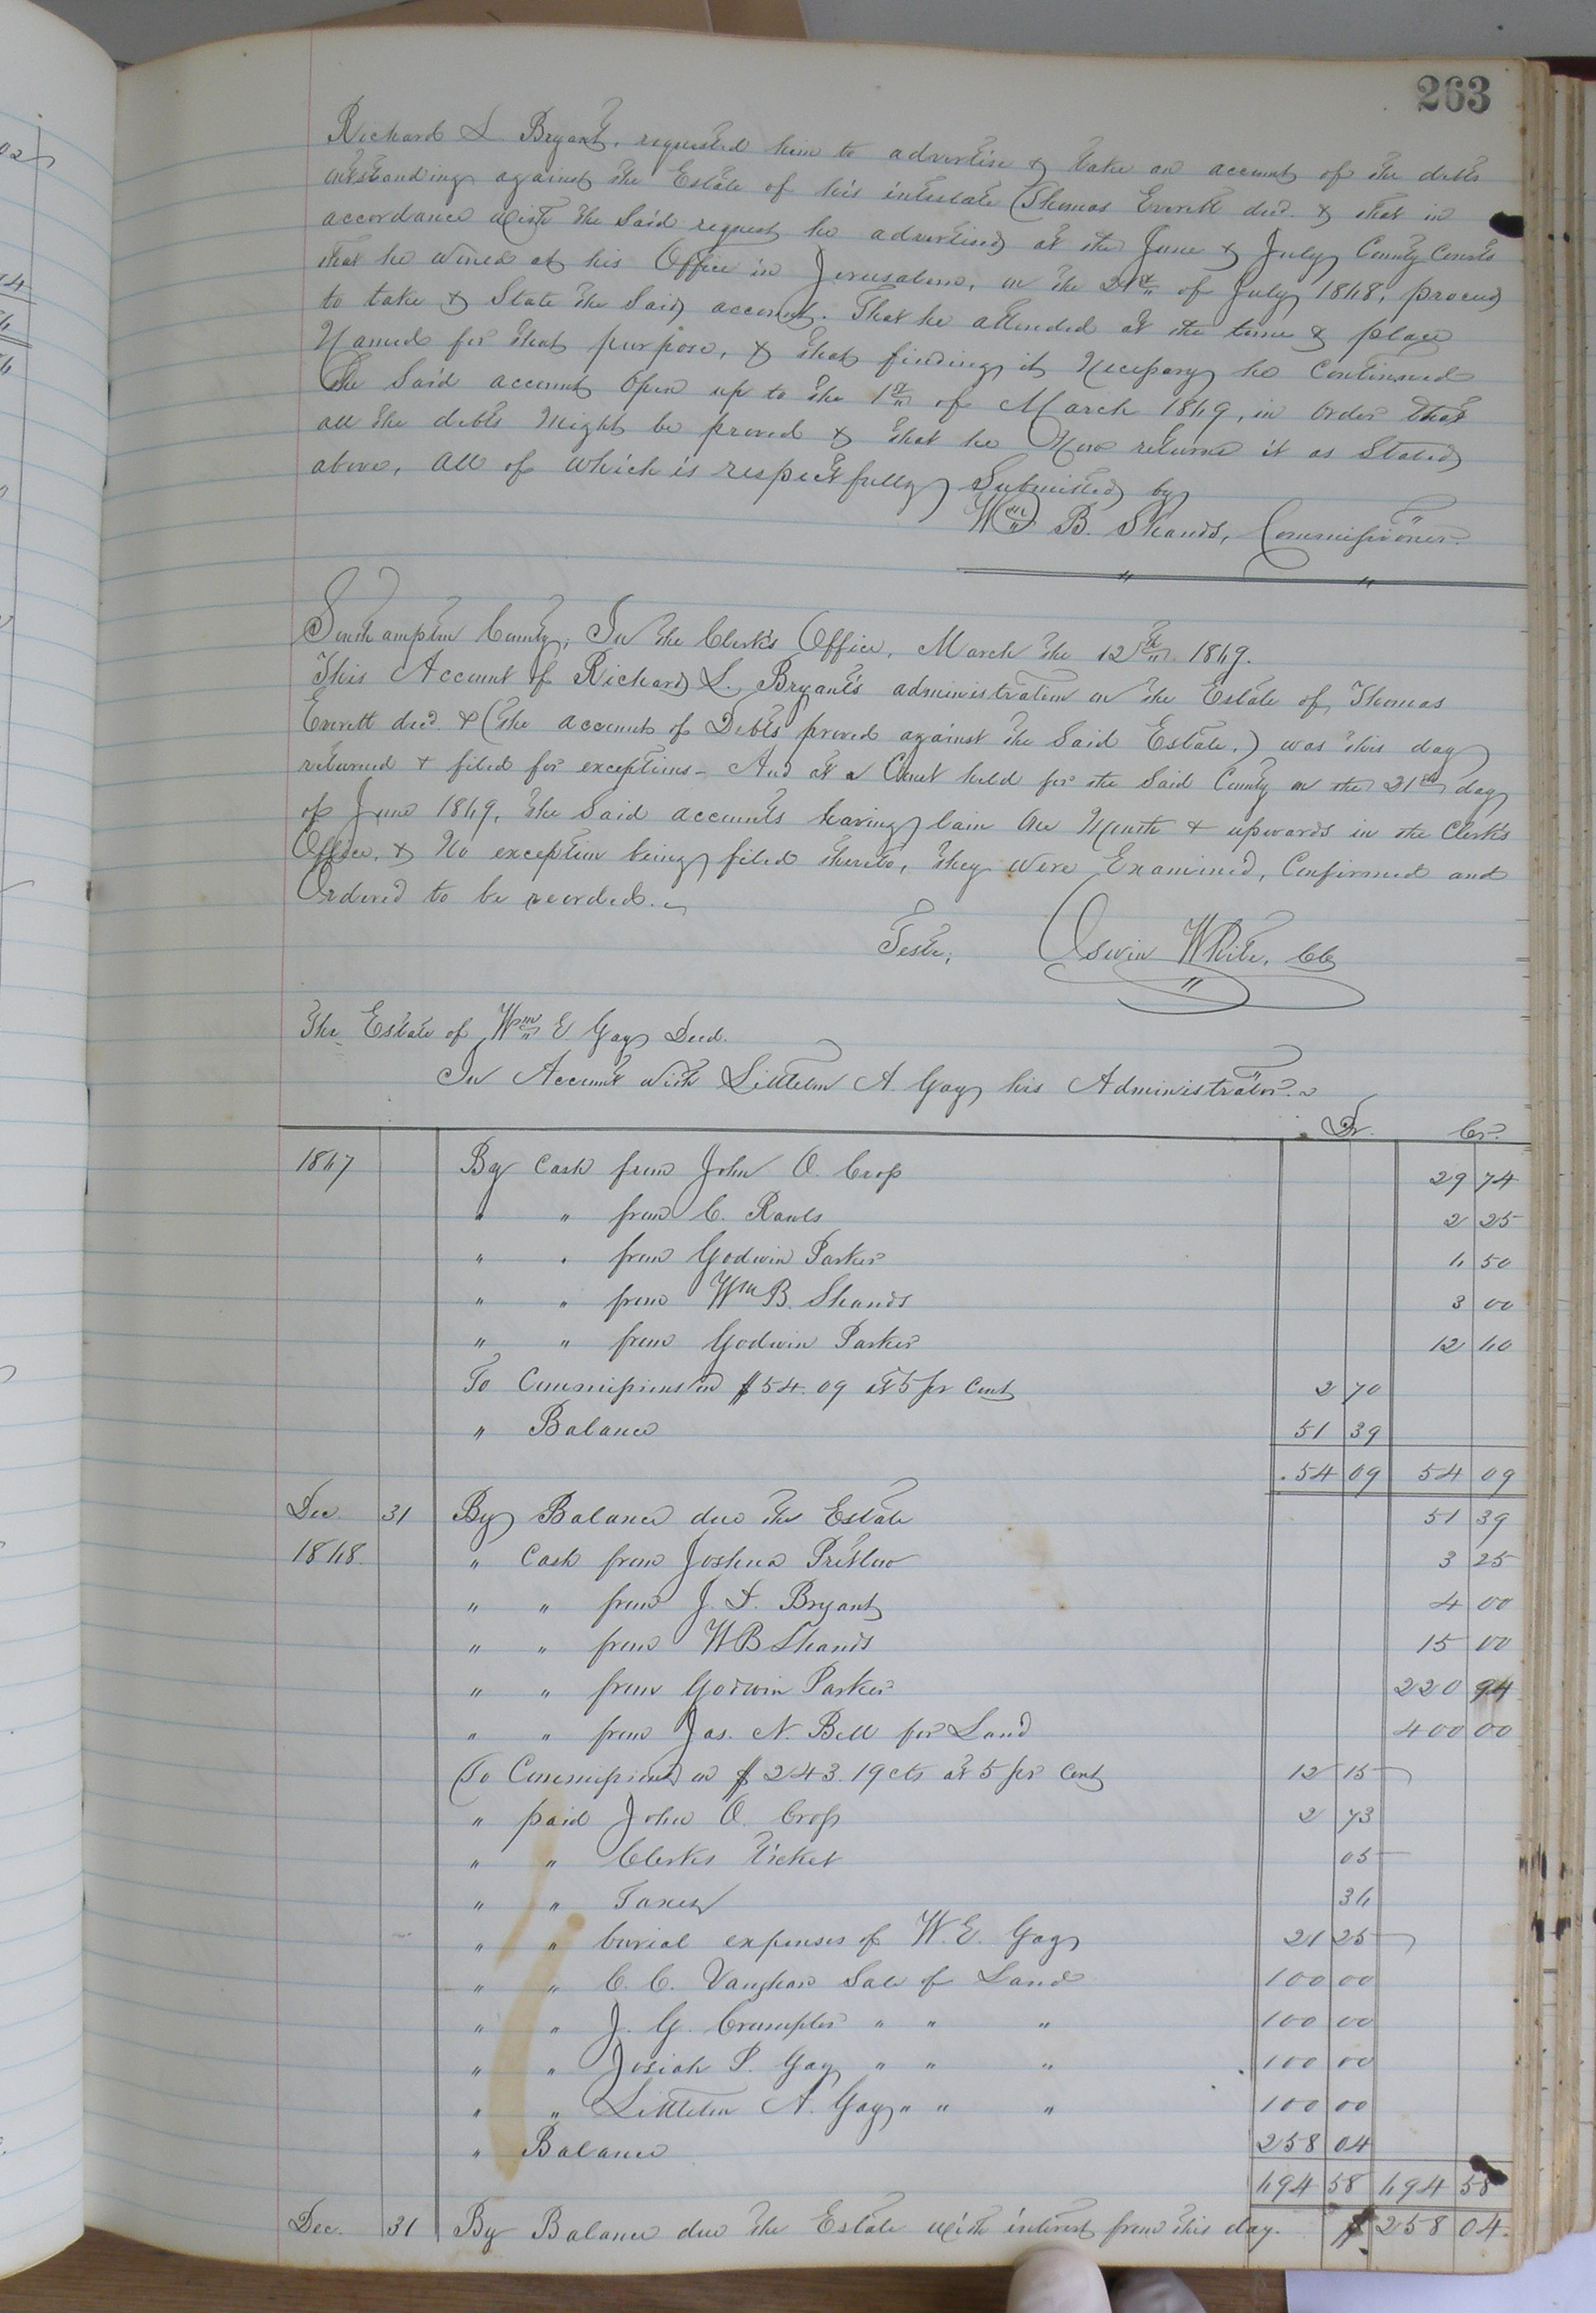 263
Richard L. Bryant, requested him to advertise & take an account of the debts
outstanding against the Estate of his intestate Thomas Everett decd. & that in
accordance with the said request he advertised at the June & July County Courts
that he would at his Office in Jerusalem, on the 21st of July 1868, proceed
to take & State the Said account. That he attended at the time & place
Named for that purpose, & that finding it Necessary he Continued
the Said account Open up to the 1st of March 1869, in Order that
all the debts Might be proved & that he Now returns it as Stated
above, all of which is respectfully Submitted by
Wm B. Shands, Commissioner.
Southampton County; In the Clerk's Office, March the 12th 1869.
This Account of Richard L. Bryant's administration on the Estate of Thomas
Everett decd. & (the account of Debts proved against the Said Estate,) was this day
returned & filed for exceptions - And at a Court held for the Said County on the 21st day
of June 1869, the Said accounts having lain One Month & upwards in the Clerk's
Office, & No exception being filed thereto, they were Examined, Confirmed and
Ordered to be recorded.
Teste, Oswin White, CC
The Estate of Wm E Gay Decd.
In Account with Littleton A. Gay his Administrator.
Dr. Cr.
1867 By Cash from John O. Cross 29 74
" " from C. Rawls 2 25
" " from Godwin Parker 6 50
" " from Wm B. Shands 3 00
" " from Godwin Parker 12 60
To Commissions on $54.09 at 5 per Cent 2 70
" Balance 51 39
54 09 54 09
Dec. 31 By Balance due the Estate 51 39
1868. " Cash from Joshua Pretlow 3 25
" " from J. D. Bryant 4 00
" " from W B Shands 15 00
" " from Godwin Parker 220 94
" " from Jas. N. Bell for Land 400 00
To Commissions on $243.19 cts at 5 per Cent 12 15
" paid John O. Cross 2 73
" " Clerks ticket 05
" " Taxes 36
" " burial expenses of W. E. Gay 21 25
" " C. C. Vaughan Sale of Land 100 00
" " J. G. Crumpler " " " 100 00
" " Josiah P. Gay " " " 100 00
" " Littleton A. Gay " " " 100 00
" Balance 258 04
694 58 694 58
Dec. 31 By Balance due the Estate with interest from this day. $ 258 04